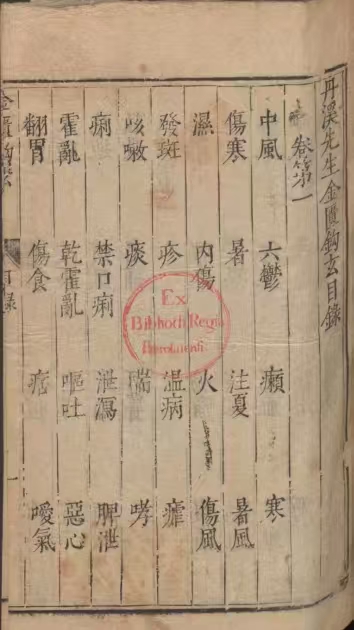 丹溪先生金匱鈎玄目錄
卷第一
中風 六鬱 癩 寒
傷寒 暑 注夏 暑風
濕 內傷 火 傷風
發斑 疹 溫病 瘧
咳嗽 痰 喘 哮
痢 禁口痢 泄瀉 脾泄
霍亂 乾霍亂 嘔吐 惡心
翻胃 傷食 痞 噯氣
目錄 一
Ex
Biblioth. Regia
Berolinensi.